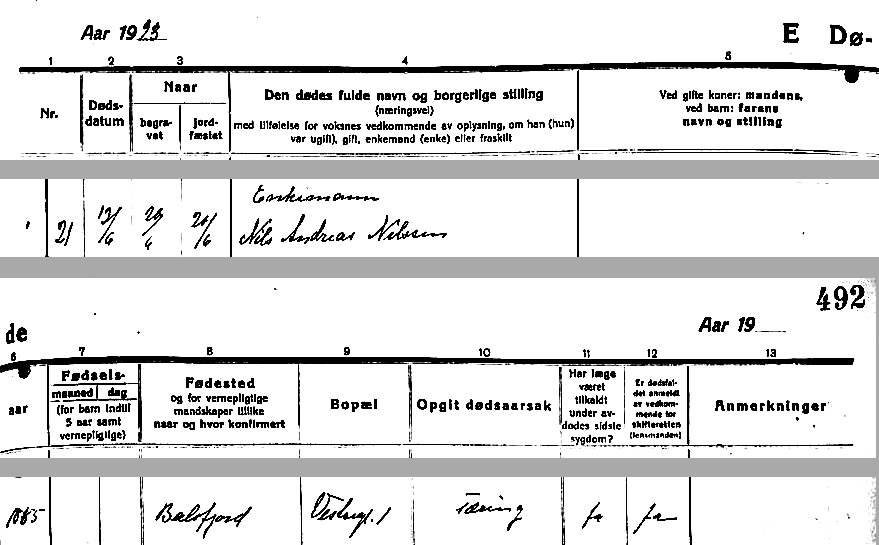 Aar 1923
E Dø-
1 2 3 4 5
Nr.
Døds-
datum
Naar
begra-
vet
jord-
fæstet
Den dødes fulde navn og borgerlige stilling
(næringsvei)
med tilføielse for voksnes vedkommende av oplysning, om han (hun)
var ugift), gift, enkemand (enke) eller fraskilt
Ved gifte koner: mandens,
ved barn: farens
navn og stilling
Enkemann
21 12/6 20/6 20/6 Nils Andreas Nilssen
492
de
Aar 19
6 7 8 9 10 11 12 13
aar
Fødsels-
maaned dag
(for barn indtil
5 aar samt
vernepligtige)
Fødested
og for vernepligtige
mandskaper tillike
naar og hvor konfirmert
Bopæl
Opgit dødsaarsak
Har læge
været
tilkaldt
under av-
dødes sidste
sygdom?
Er dødsfal-
det anmeldt
av vedkom-
mende for
skifteretten
(lensmanden)
Anmerkninger
1885 Balsfjord Vestregt. 1 Tæring ja ja